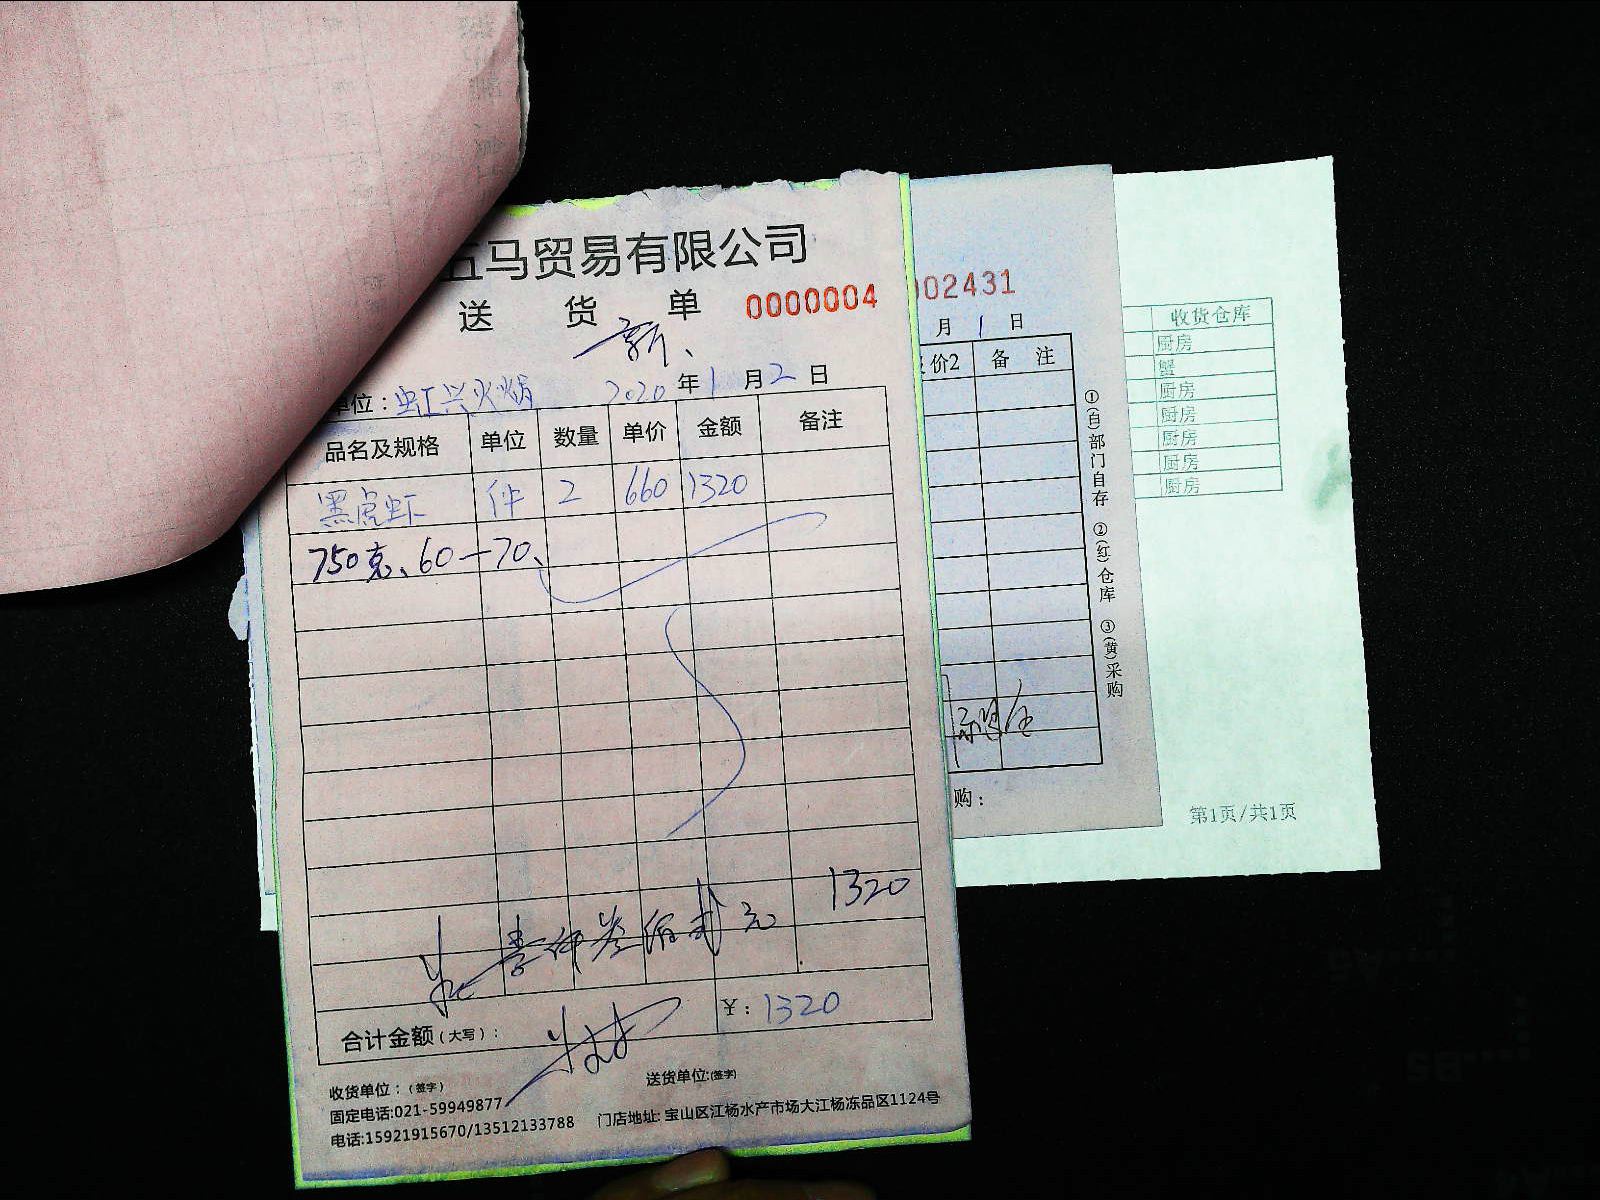 五马贸易有限公司
送 货 单 0000004
新、
单位:虹兴火锅 2020 年 1 月 2 日
品名及规格 单位 数量 单价 金额 备注
黑虎虾 件 2 660 1320
750克、60-70、
壹仟叁佰贰元 1320
合计金额(大写): ¥:1320
收货单位:(签字) 送货单位:(签字)
固定电话:021-59949877
电话:15921915670/13512133788 门店地址:宝山区江杨水产市场大江杨冻品区1124号
002431
月 1 日
价2 备 注
①(白)部门自存 ②(红)仓库 ③(黄)采购
购:
收货仓库
厨房
蟹
厨房
厨房
厨房
厨房
厨房
第1页/共1页